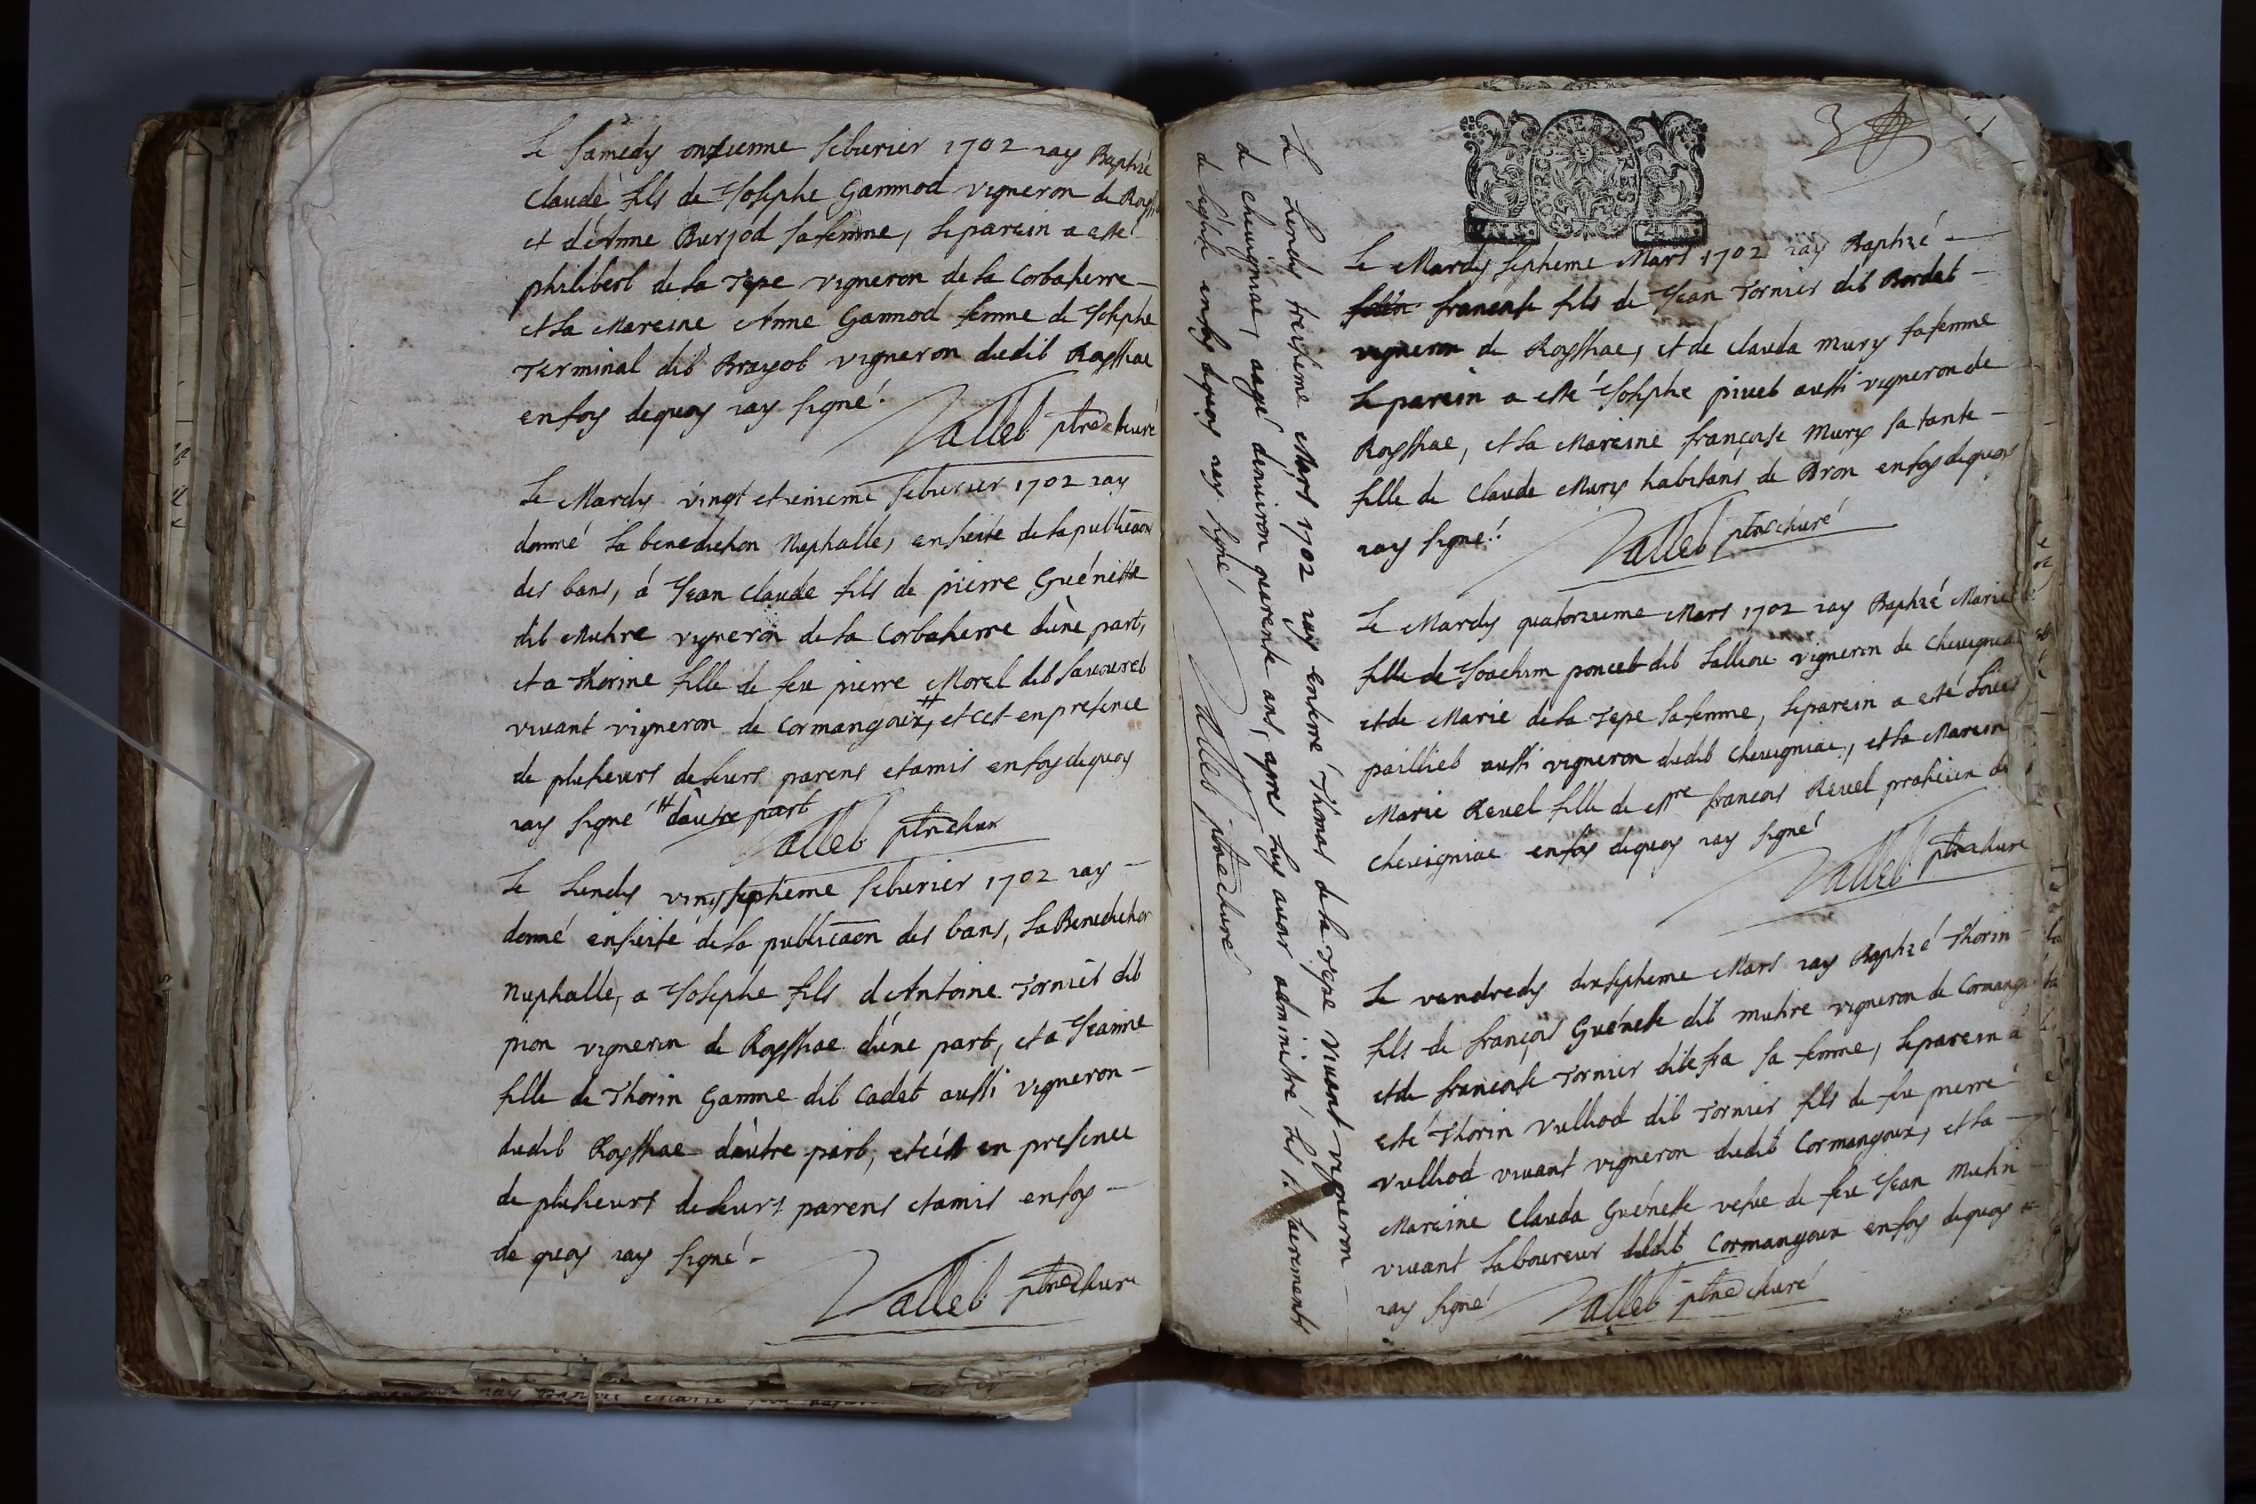 Le samedy onzieme feburier 1702 jay Baptizé
Claude fils de Josephe Gamnod vigneron de
et d'Anne Burjod sa femme, le parein a esté
philibert de la Tepe vigneron de la Corbatierre
et la Mareine Anne Gamnod femme de Josephe
Terminal dit Brayot vigneron dudit Roissiac
en foy dequoy jay signé.
Vallet ptre et curé
Le Mardy vingt et unieme feburier 1702 jay
donné la benediction Nuptialle, en suite de la publicaon
des bans, á Jean Claude fils de pierre Guénette
dit Mutire vigneron de la Corbatierre d'une part,
et a Thorine fille de feu pierre Morel dit Savouret
vivant vigneron de Cormangoux,# et cet en presence
de plusieurs de leurs parens et amis en foy dequoy
jay signé # d'autre part
Vallet ptre et curé
Le Lundy vingt septieme feburier 1702 jay
donné en suite de la publicaon des bans, la Benediction
Nuptialle, a Josephe fils d'Antoine Tornier dit
pion vigneron de Roissiac d'une part, et a Jeanne
fille de Thorin Gamme dit Cadet aussi vigneron
dudit Roissiac d'autre part, et cet en presence
de plusieurs de leurs parens et amis en foy
de quoy jay signé
Vallet ptre et curé
Le Lundy treisieme Mars 1702 jay enterré Thomas de la Tepe vivant vigneron
de Chevigniac, aagé d'environ quarente ans, apres luy avoir administré les sacrements
de l'eglise en foy dequoy jay signé
Vallet ptre et curé
3
BOURG EN BRESSE
Le Mardy septieme Mars 1702 jay Baptizé
francoise fils de Jean Tornier dit Bordat
vigneron de Roissiac, et de Clauda Mury sa femme
le parein a esté Josephe pivet aussi vigneron de
Roissiac, et la Mareine françoise Mury sa tante
fille de Claude Mury habitans de Bron en foy de quoy
jay signé.
Vallet ptre et curé
Le Mardy quatorzieme Mars 1702 jay Baptizé Marie
fille de Joachim poncet dit Salliou vigneron de Chevigniac
et de Marie de la Tepe sa femme, le parein a esté Louis
pailliet aussi vigneron dudit Chevigniac, et la Marein
Marie Revel fille de Mre francois Revel praticien de
Chevigniac en foy dequoy jay signé
Vallet ptre et curé
Le vendredy dixseptieme Mars jay Baptizé Thorin
fils de françois Guénette dit mutire vigneron de
et de francoise Tornier sa femme, le parein a
esté Thorin Vulliod dit Tornier fils de feu pierre
Vulliod vivant vigneron dudit Cormangoux, et la
Mareine Clauda Guénette vefve de feu Jean Mutin
vivant laboureur dudit Cormangoux en foy dequoy
jay signé
Vallet ptre et curé